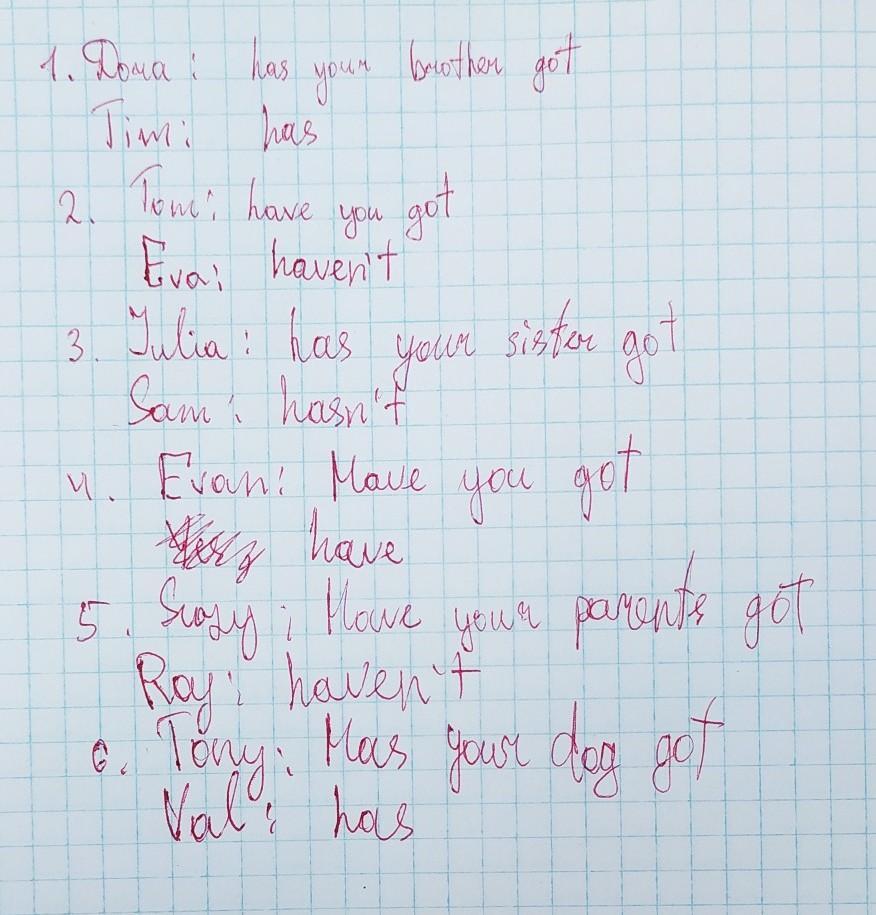 1. Dora: has your brother got
Tim: has
2. Tom: have you got
Eva: haven't
3. Julia: has your sister got
Sam: hasn't
4. Evan: Have you got
have
5. Suzy: Have your parents got
Roy: haven't
6. Tony: Has your dog got
Val: has